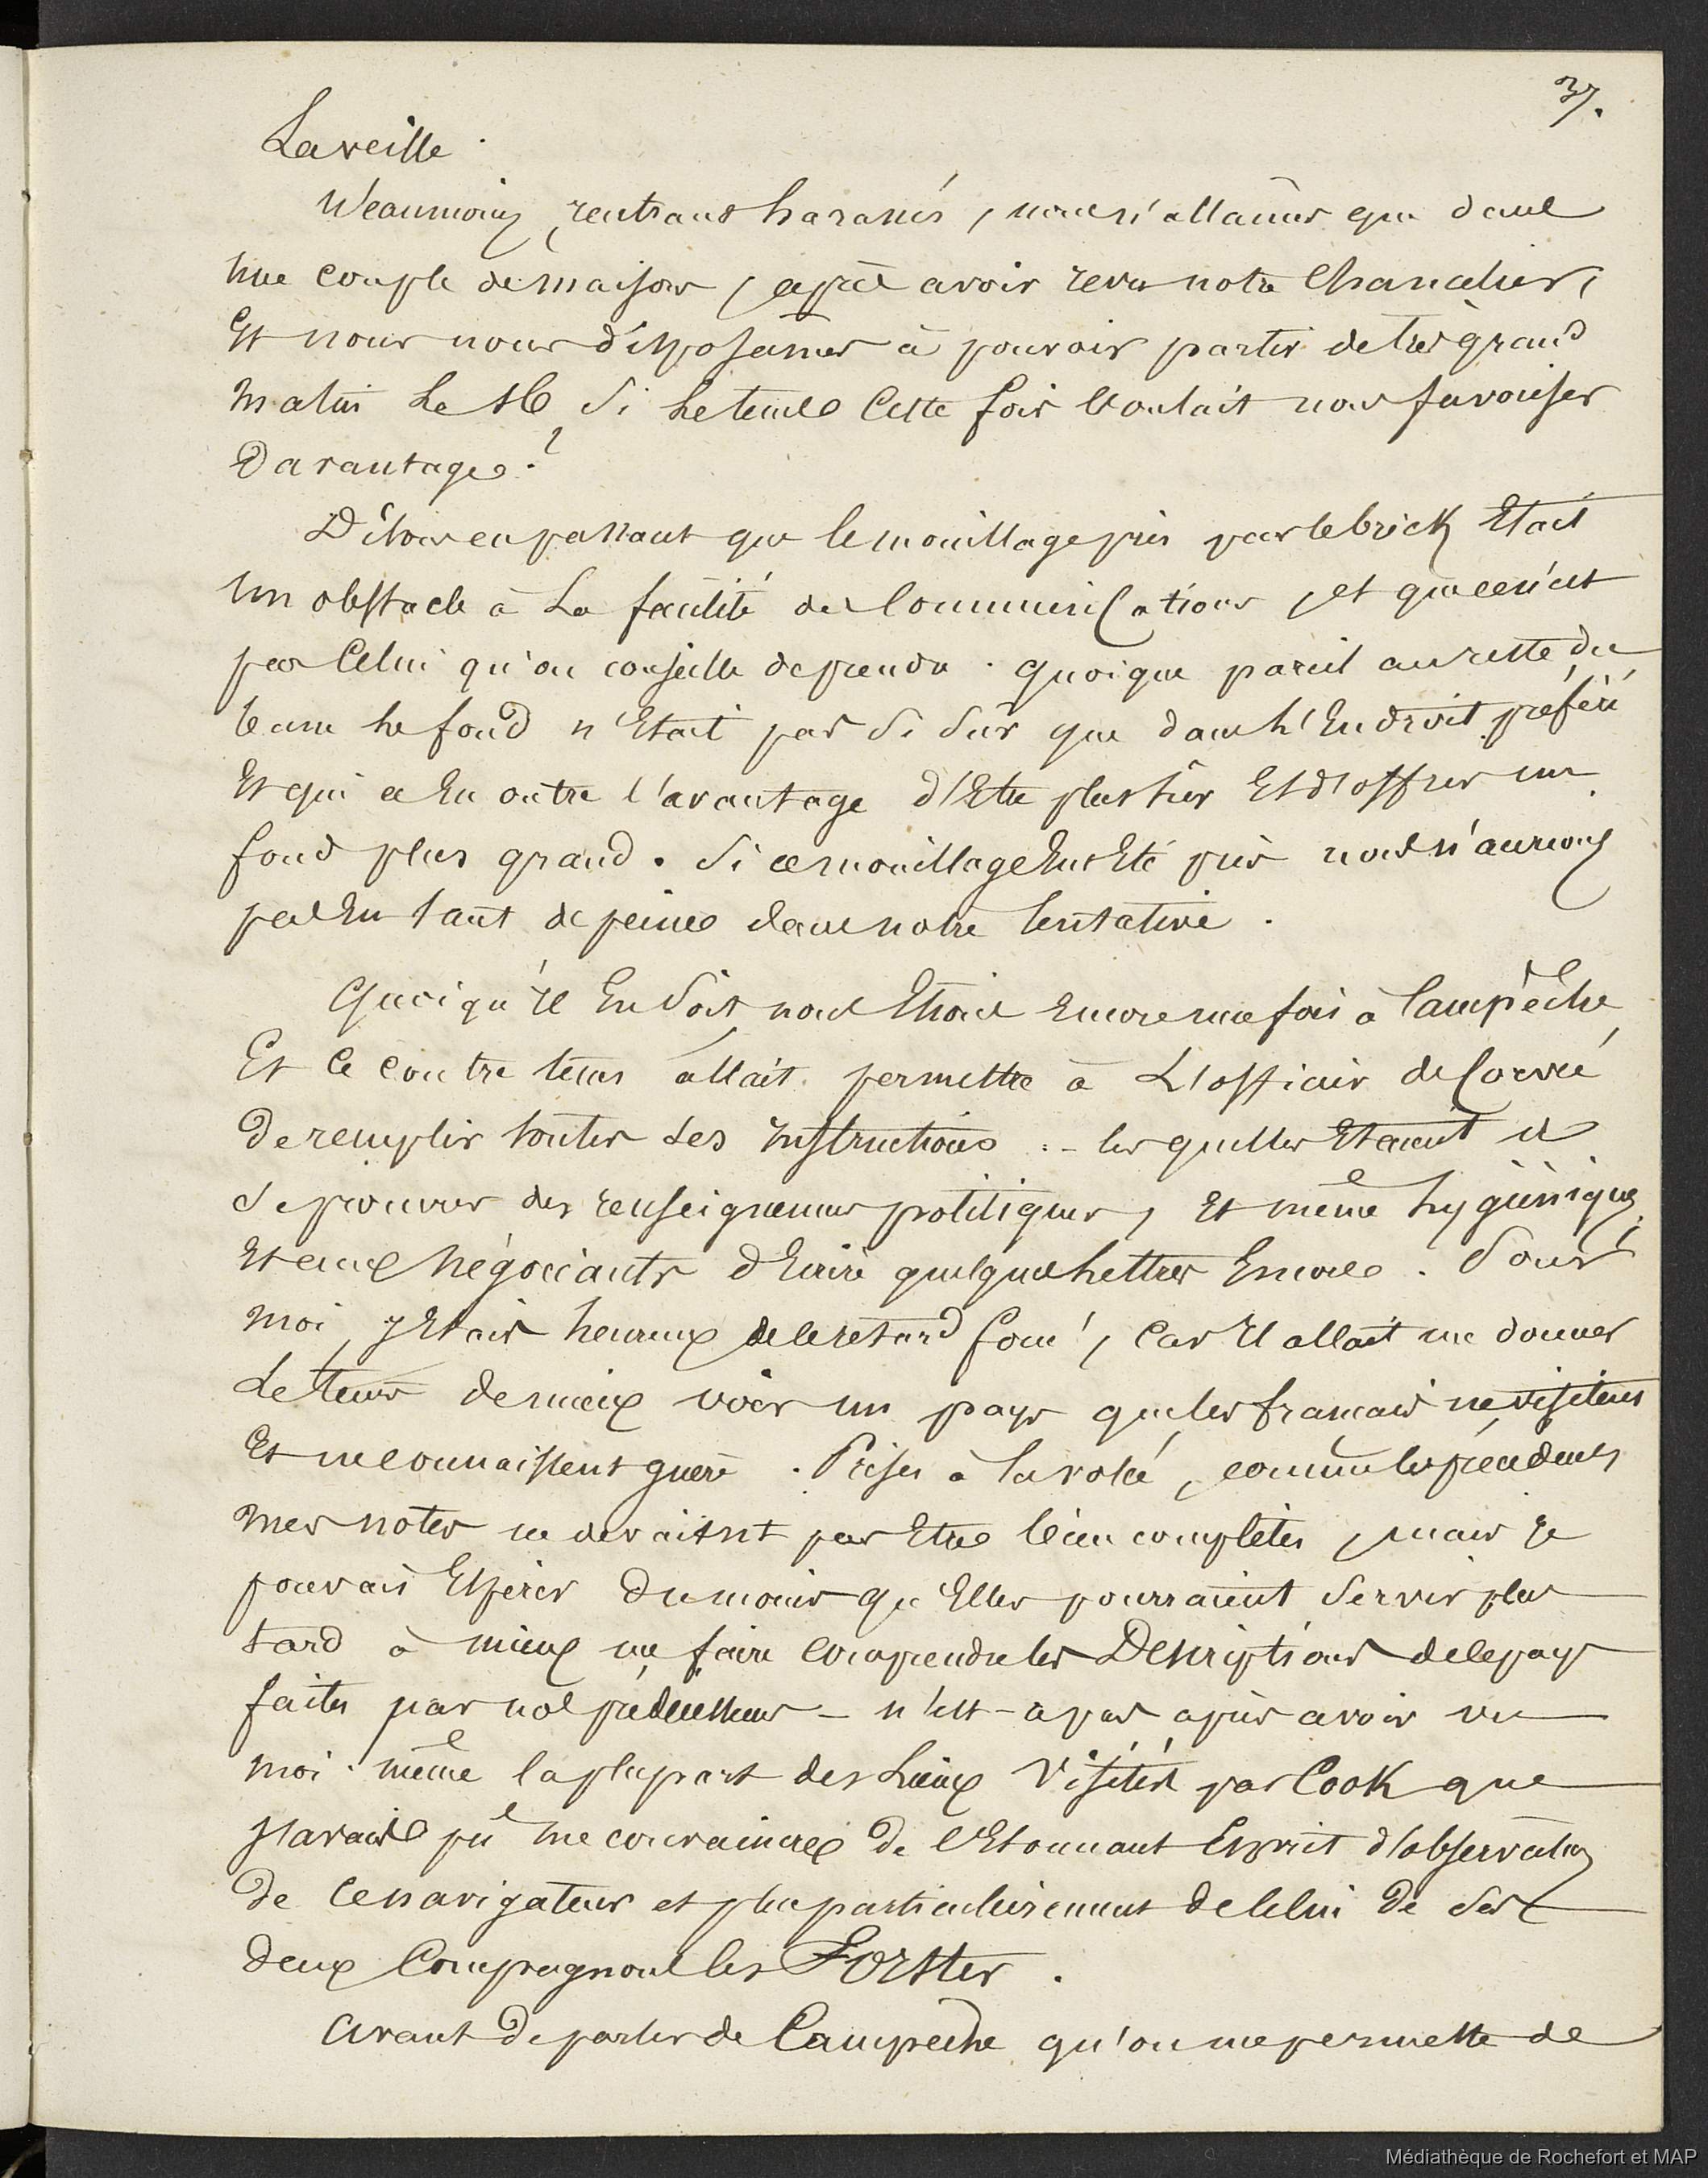 37.
La veille.
Néanmoins, rentrant harassés, nous n'allâmes que dans
une couple de maisons, après avoir revu notre Chancelier,
Et nous nous disposâmes à pouvoir partir de très grand
matin Le 16, Si le tems Cette fois voulait nous favoriser
Davantage?
Disons en passant que le mouillage pris par le brick Etait
un obstacle à La facilité des Communications, et que ce n'est
pas Celui qu'on conseille de prendre. quoique pareil au reste du
banc le fond n'Etait pas si sûr que dans l'Endroit préféré
Et qui a En outre l'avantage d'Etre plus sûr Et d'offrir un
fond plus grand. Si ce mouillage Eut Eté pris nous n'aurions
pas Eu tant de peine dans notre tentative.
Quoiqu'il En soit, nous Etions Encore une fois à Campêche,
Et ce contre tems allait permettre à L'officier de Corvée
De remplir toutes ses Instructions:- lesquelles Etaient de
se procurer des renseignemens politiques, Et même hygièniques,
Et aux Négociants d'Ecrire quelques Lettres Encore. Pour
moi, j'Etais heureux de ce retard forcé, Car il allait me donner
Le tems de mieux voir un pays que les français ne visitent
Et ne connaissent guère. Prises à la volée, comme les précédentes
mes notes ne devaient pas Etre bien complètes, mais je
pouvais Espérer Du moins qu'Elles pourraient servir plus
tard à mieux me faire comprendre les Descriptions de ce pays
faites par nos prédécesseurs - n'est-ce pas après avoir vu
moi-même la plupart des Lieux Visités par Cook que
j'avais pû me convaincre De l'Etonnant Esprit d'observation
De Ce navigateur et plus particulièrement de Celui De ses
Deux Compagnons les Forster.
Avant De parler de Campêche qu'on me permette de
Médiathèque de Rochefort et MAP